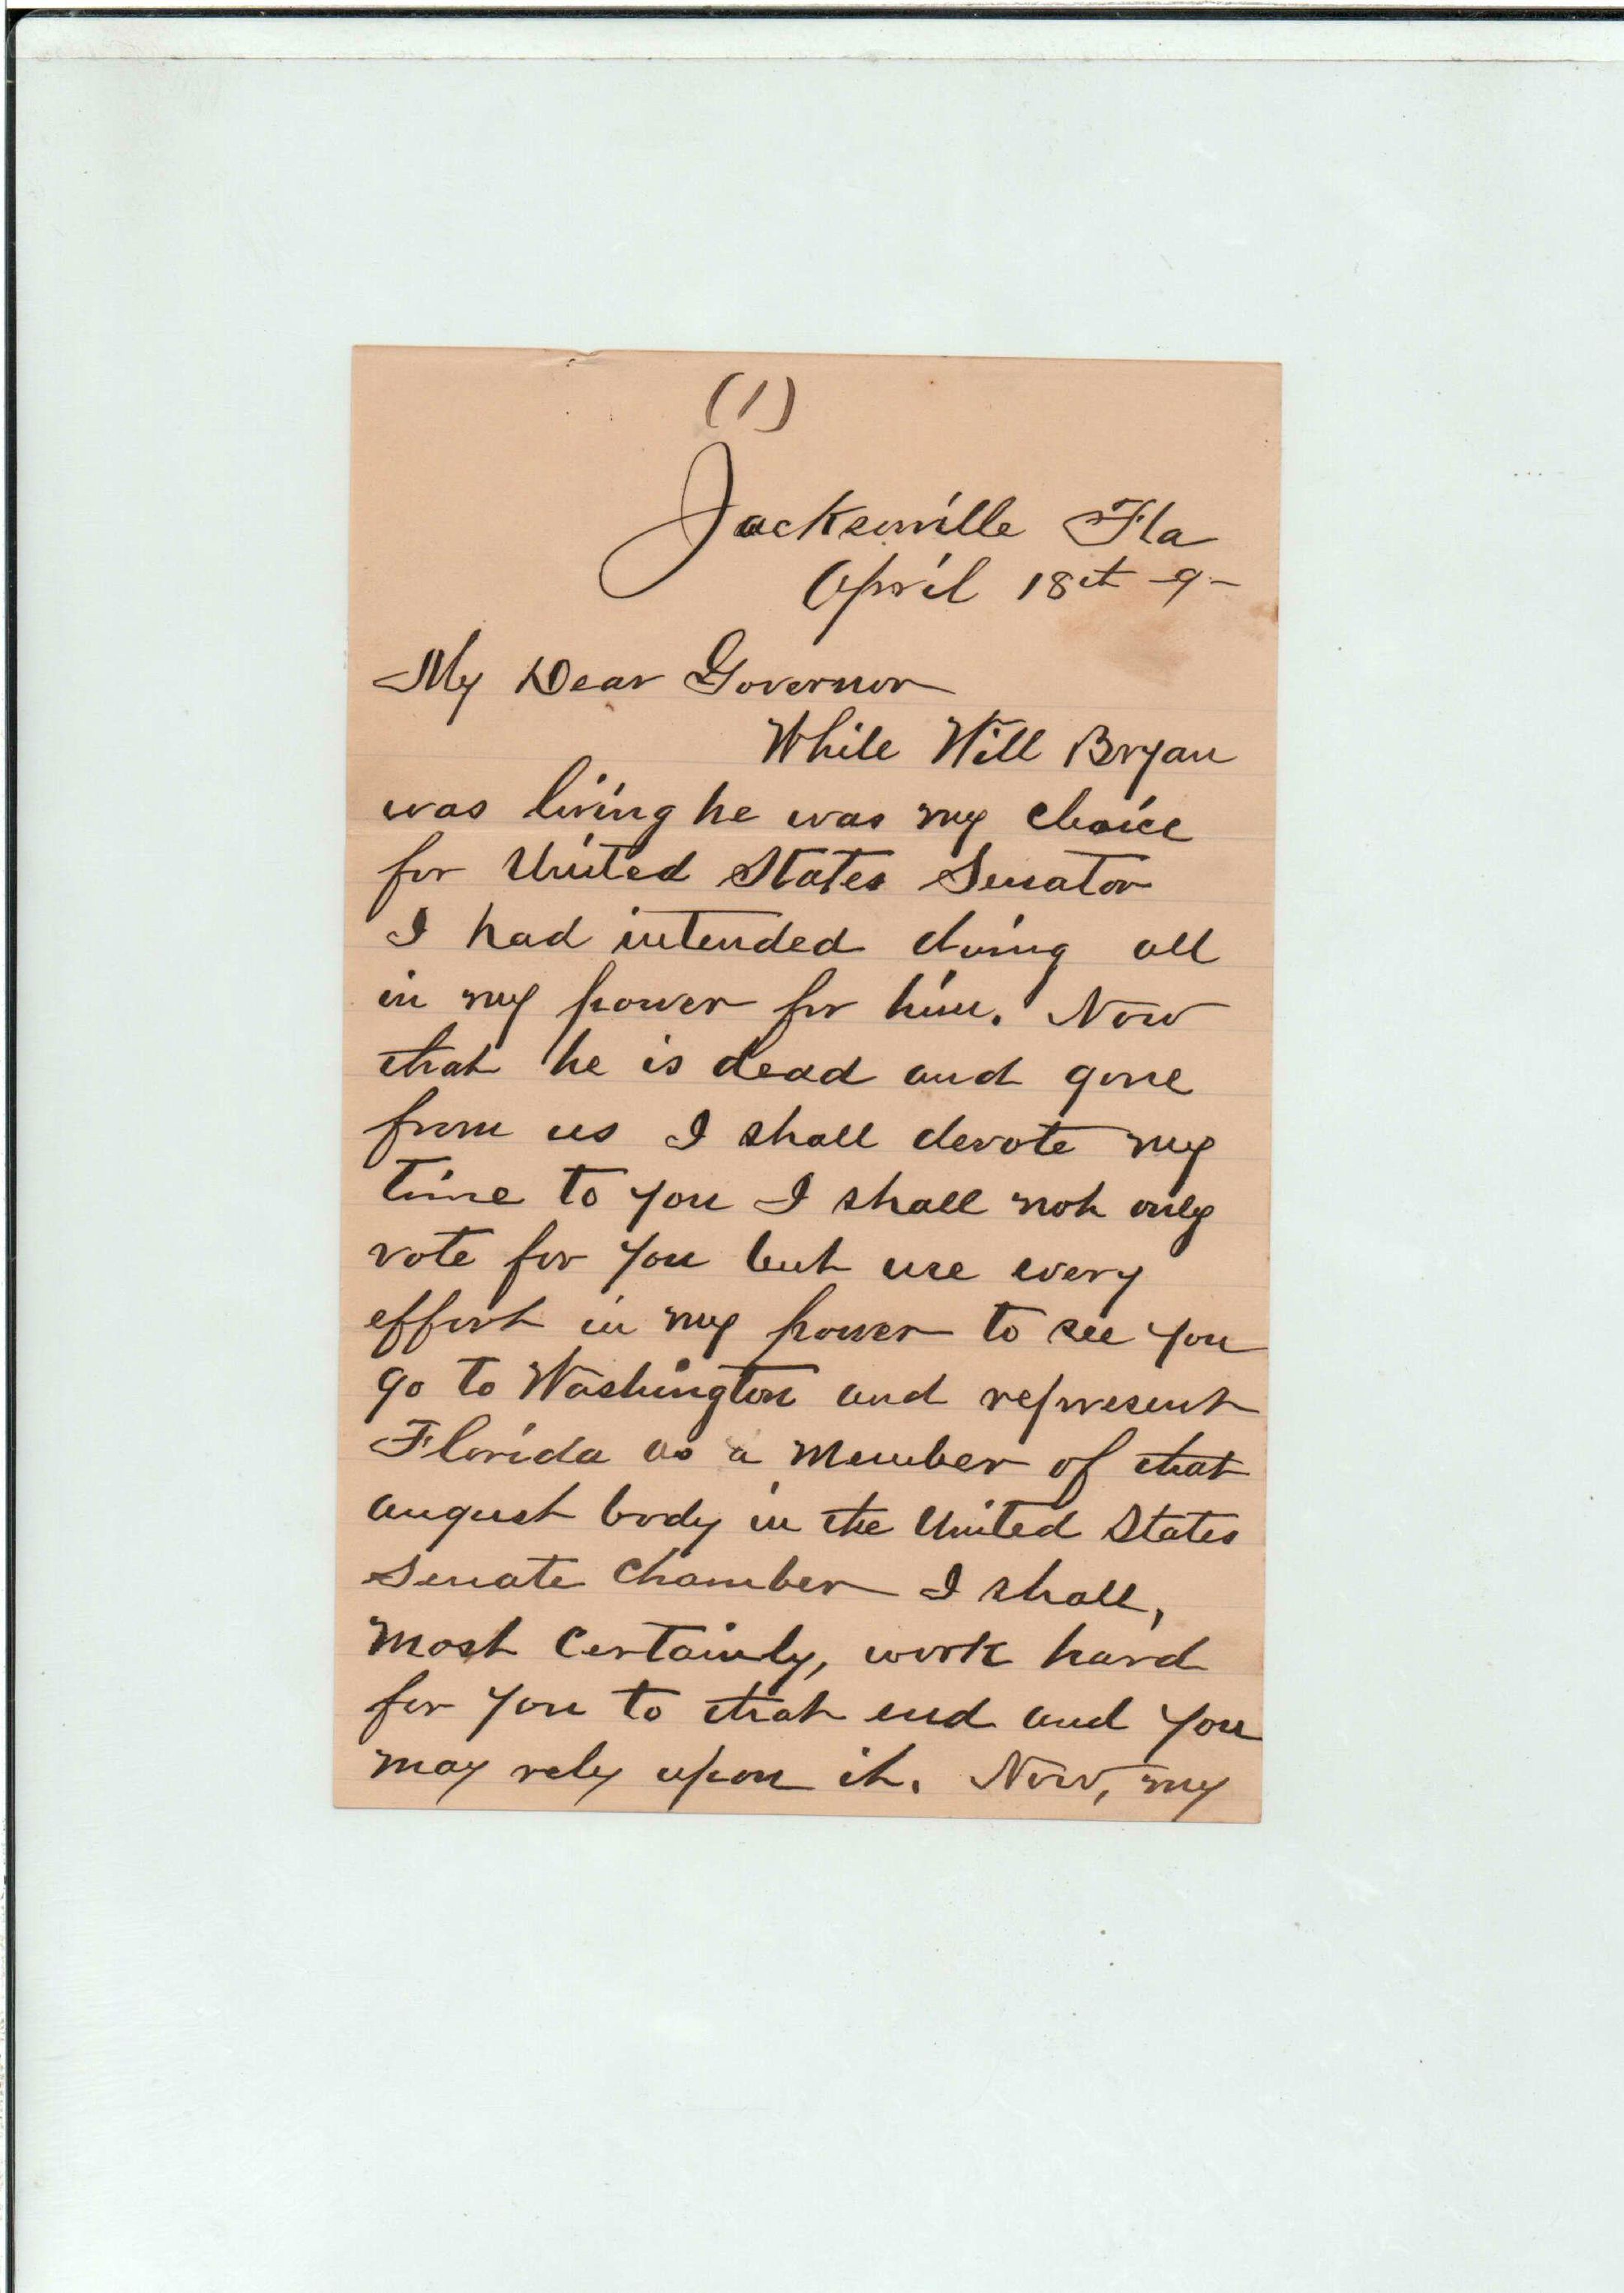 (1)
Jacksonville Fla
April 18th -9-
My Dear Governor
While Will Bryan
was living he was my choice
for United States Senator
I had intended doing all
in my power for him. Now
that he is dead and gone
from us I shall devote my
time to you I shall not only
vote for you but use every
effort in my power to see you
go to Washington and represent
Florida as a member of that
august body in the United States
Senate Chamber I shall,
most certainly, work hard
for you to that end and you
may rely upon it. Now, my